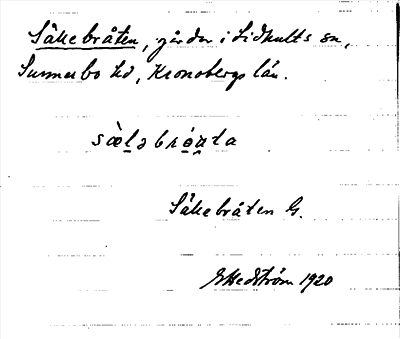 Sällebråten, gårdar i Lidhults sn,
Sunnerbo hd, Kronobergs län.
Sällebråten G.
GHedström 1920